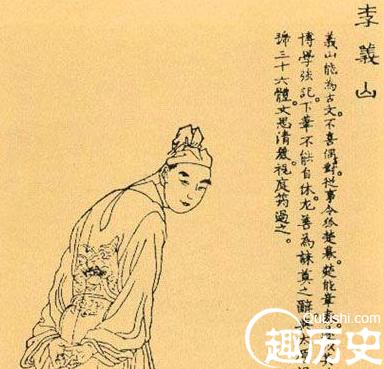 李義山
義山能為古文。不喜偶對。從事令狐楚幕。楚能章奏。
博學强記。下筆不能自休。尤善為誄奠之辭。
號三十六體。文思清麗。視庭筠過之。
QuLishi.com
趣历史